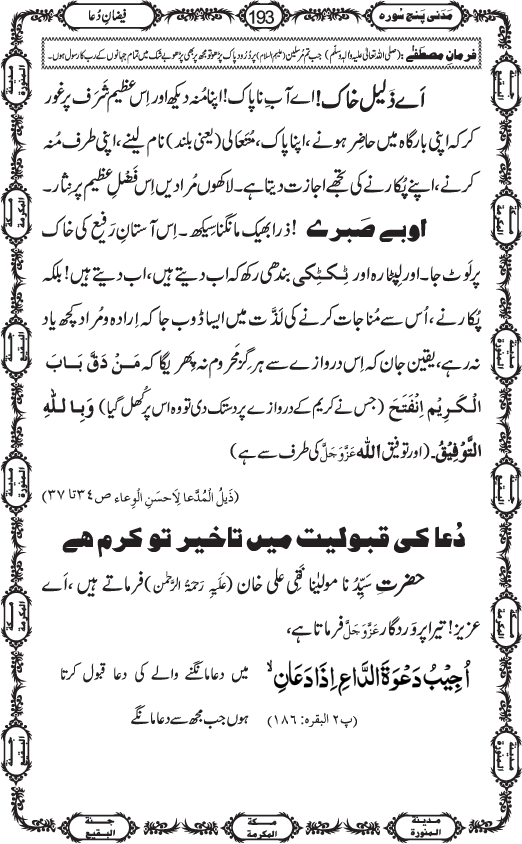 مَدَنی پَنج سُورہ
193
فیضانِ دُعا
فرمانِ مصطفٰے : (صلی اللہ تعالیٰ علیہ واٰلہٖ وسلّم) جب تم مُرسلین (علیہم السلام) پر دُرُود پاک پڑھو تو مجھ پر بھی پڑھو بے شک میں تمام جہانوں کے رب کا رسول ہوں۔
اَے ذَلیل خاک! اے آبِ ناپاک! اپنا مُنہ دیکھ اور اِس عظیم شَرَف پر غور
کر کہ اپنی بارگاہ میں حاضِر ہونے، اپنا پاک، مُتَعَالی (یعنی بلند) نام لینے، اپنی طرف مُنہ
کرنے، اپنے پُکارنے کی تجھے اجازت دیتا ہے۔ لاکھوں مُرادیں اِس فَضْلِ عظیم پر نِثار۔
او بے صَبرے! ذرا بھیک مانگنا سیکھ۔ اِس آستانِ رَفیع کی خاک
پر لَوٹ جا۔ اور لِپٹا رہ اور ٹِکٹِکی بندھی رکھ کہ اب دیتے ہیں، اب دیتے ہیں! بلکہ
پُکارنے، اُس سے مُناجات کرنے کی لَذَّت میں ایسا ڈوب جا کہ اِرادہ و مُراد کچھ یاد
نہ رہے، یقین جان کہ اِس دروازے سے ہرگز مَحْروم نہ پھریگا کہ مَنْ دَقَّ بَابَ
الْکَرِیْمِ اِنْفَتَحَ (جس نے کریم کے دروازے پر دستک دی تو وہ اس پر کُھل گیا) وَبِاللّٰہِ
التَّوْفِیْقُ۔ (اور توفیق اللہ عَزَّوَجَلَّ کی طرف سے ہے)
(ذَیلُ الْمُدَّعَا لِاَحسَنِ الْوِعَاء ص ٣٤ تا ٣٧)
دُعا کی قبولیت میں تاخیر تو کرم ھے
حضرتِ سَیِّدُنا مولیٰنا نَقِی علی خان (عَلَیْہِ رَحمَۃُ الرَّحْمٰن) فرماتے ہیں، اَے
عزیز! تیرا پروَردگار عَزَّوَجَلَّ فرماتا ہے،
اُجِیْبُ دَعْوَۃَ الدَّاعِ اِذَا دَعَانِ ۙ
میں دعا مانگنے والے کی دعا قبول کرتا
(پ٢ البقرہ: ١٨٦)
ہوں جب مجھ سے دعا مانگے
مدینۃ المنورۃ
مکۃ المکرمۃ
جنۃ البقیع